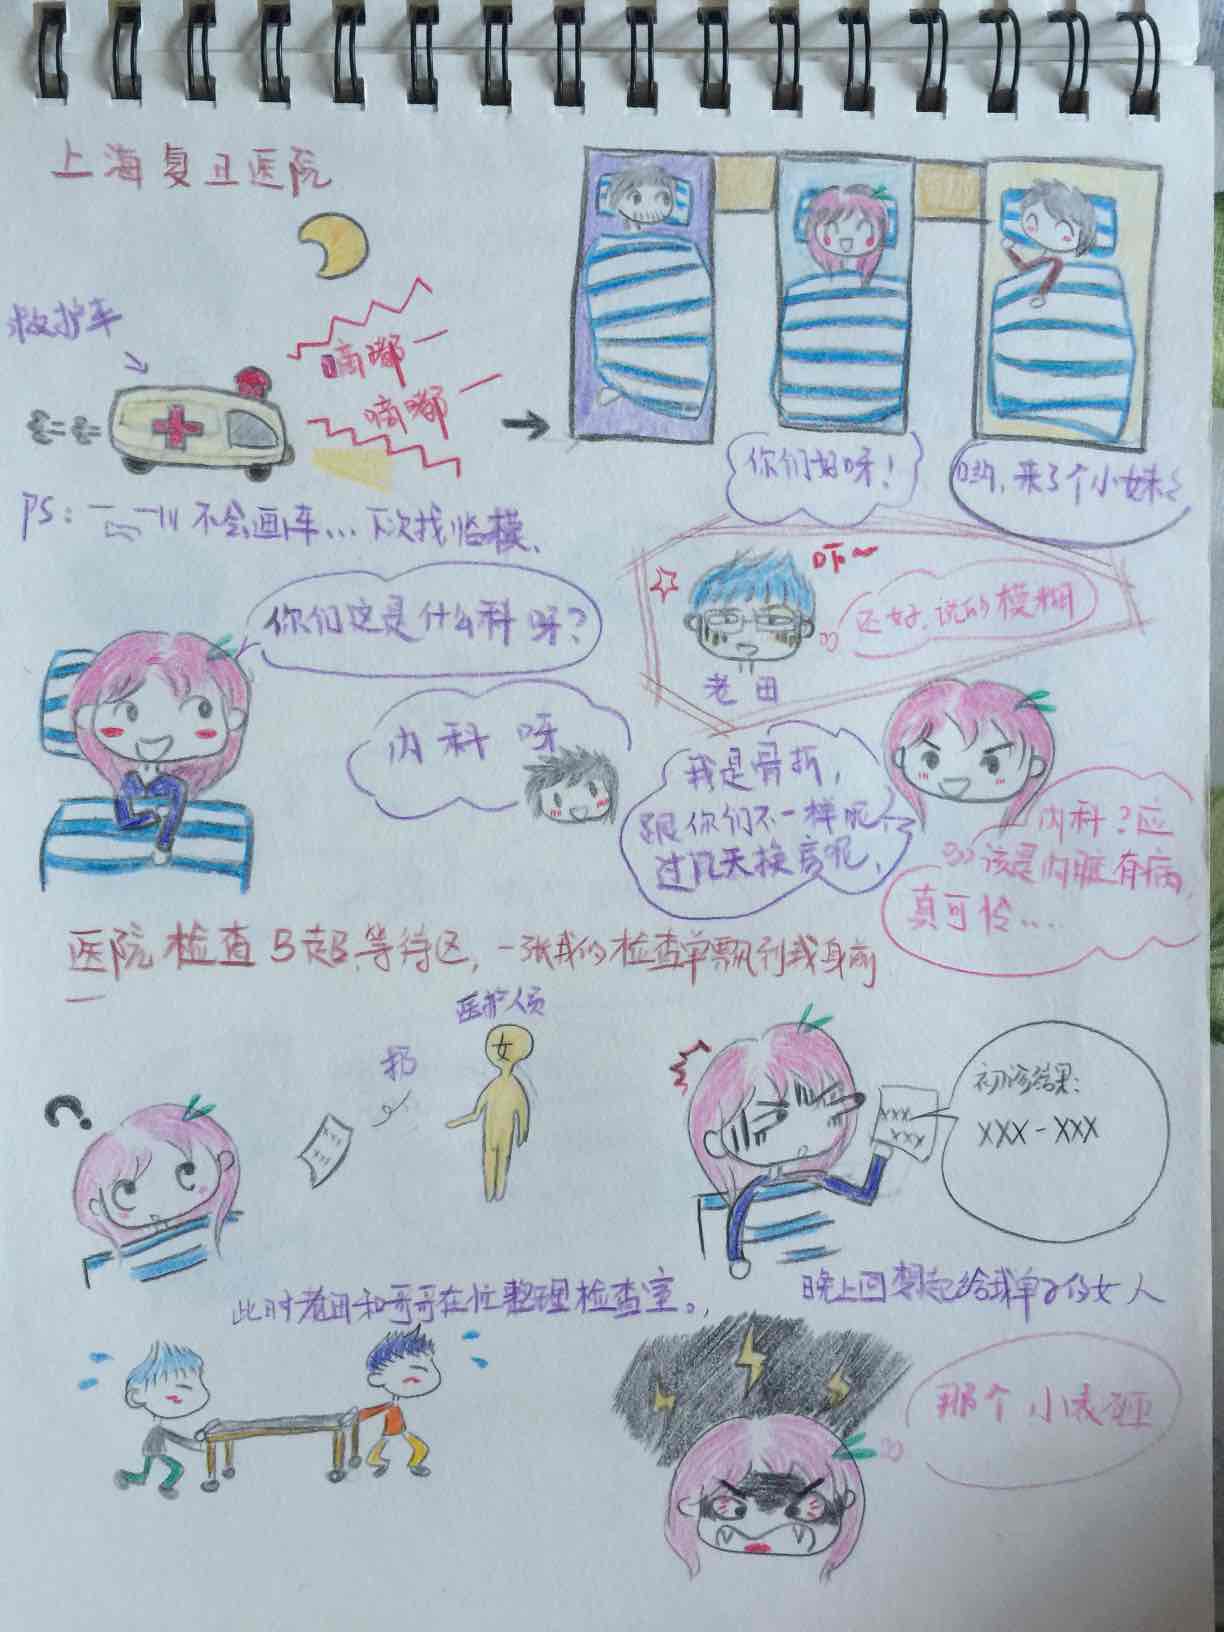 上海复旦医院
救护车
嘀嘟
嘀嘟
PS: 不会画车...下次找临摹.
你们好呀！
哟，来了个小妹
你们这是什么科呀？
内科呀
吓~
还好，说的模糊
老田
我是骨折，
跟你们不一样呢
过几天换房呢，
内科？应
该是内脏有病，
真可怜....
医院检查 等待区，一张我的检查单飘到我身前
医护人员
女
扔
xxx
xxx
xxx
xxx
初诊结果：
XXX-XXX
此时老田和哥哥在忙整理检查室。
晚上回想起给我单子的女人
那个小表砸